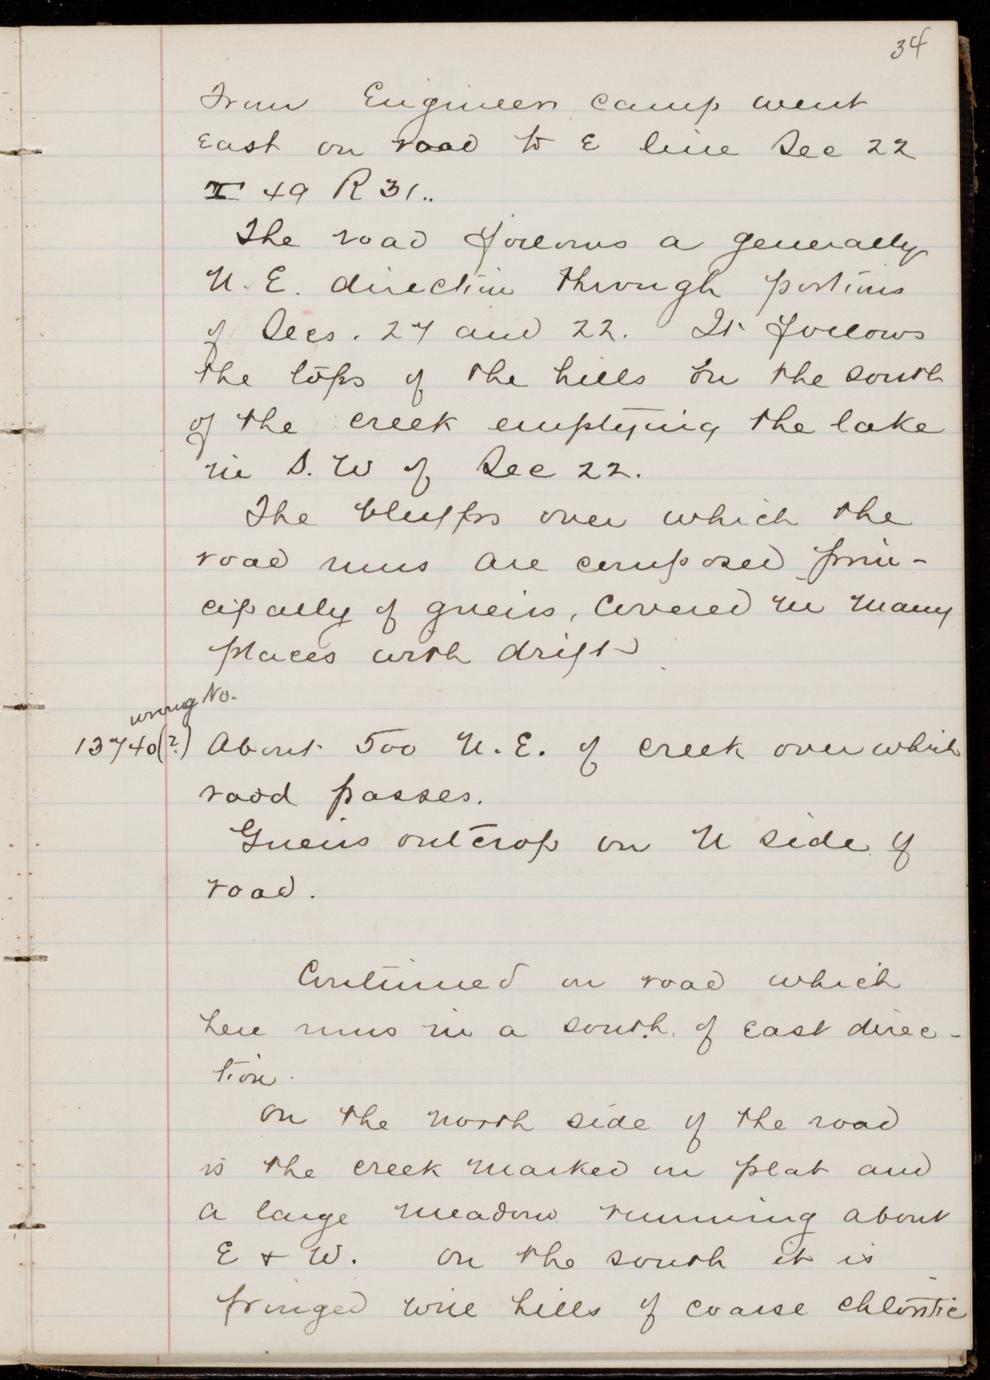 34
From Engineers camp went
East on road to E line Sec 22
T 49 R 31..
The road follows a generally
N. E. direction through portions
of Secs. 27 and 22. It follows
the tops of the hills on the south
of the creek emptying the lake
in S. W of Sec 22.
The bluffs over which the
road runs are composed prin-
cipally of gneiss, covered in many
places with drift
wrong No.
13740(?) About 500 N. E. of creek over which
road passes.
Gneiss outcrop on N side of
road.
Continued on road which
here runs in a south. of east direc-
tion.
on the north side of the road
is the creek marked on plat and
a large meadow running about
E & W. on the south it is
fringed with hills of coarse chloritic